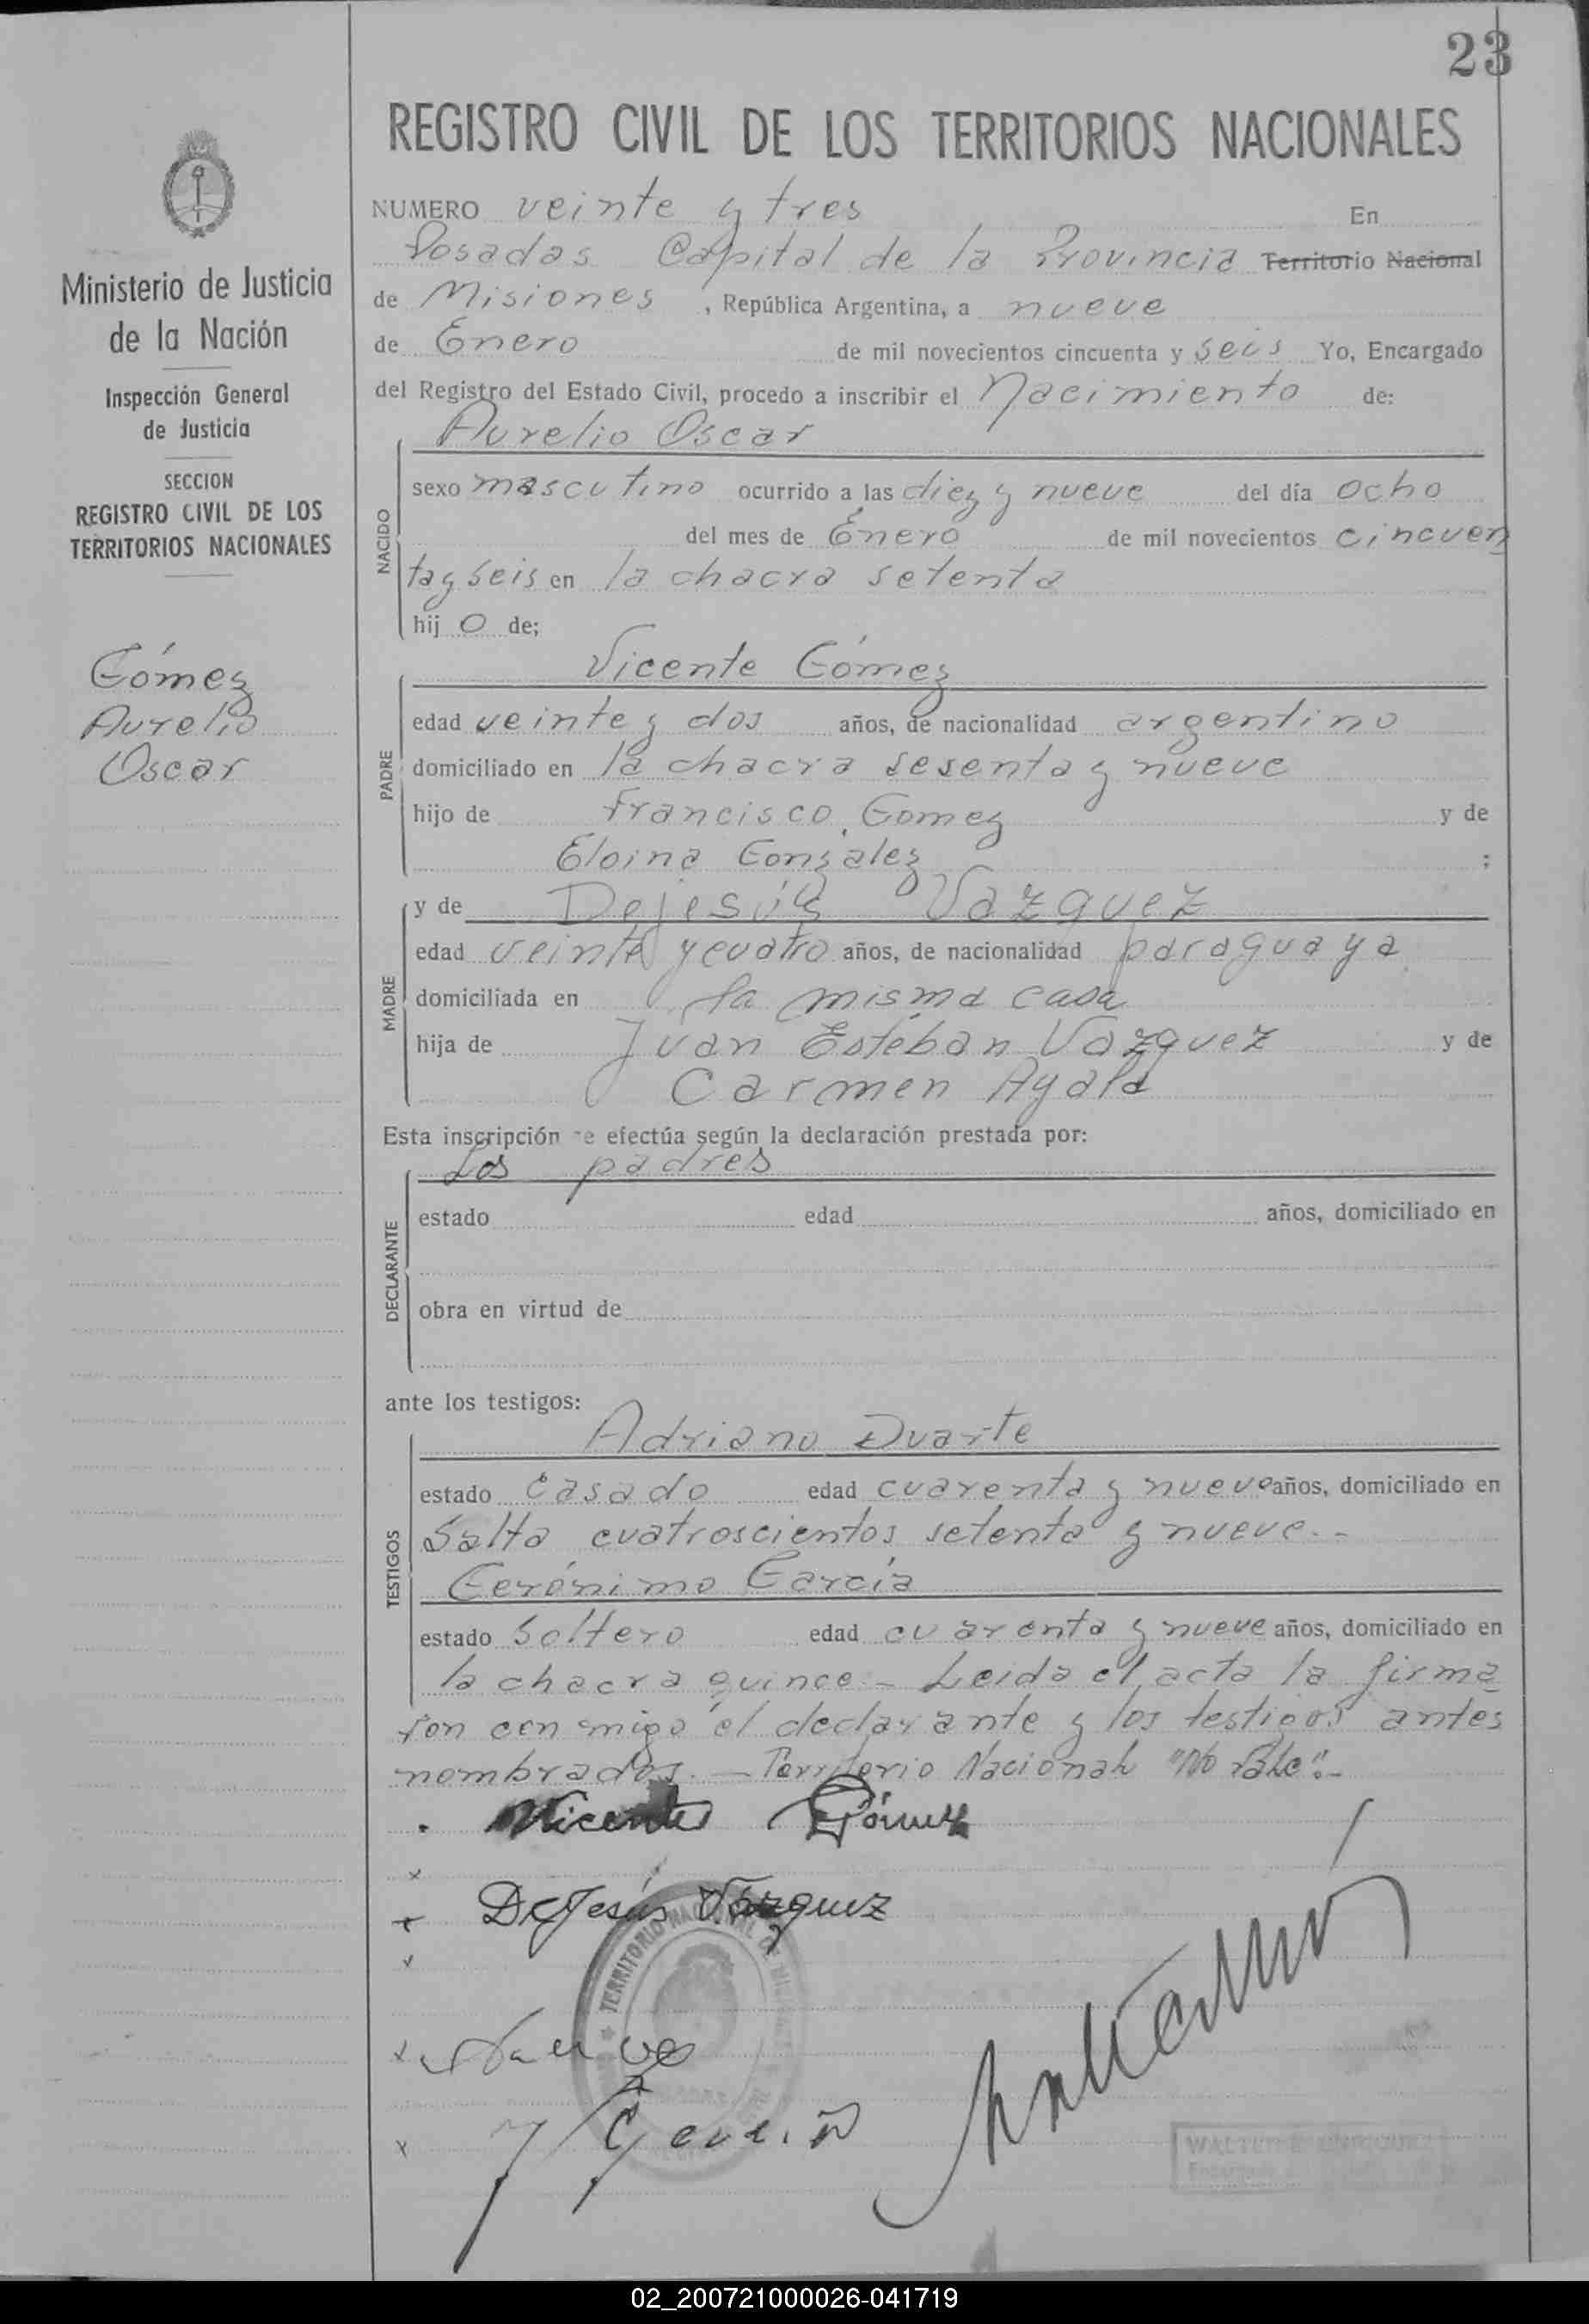 23
REGISTRO CIVIL DE LOS TERRITORIOS NACIONALES
Ministerio de Justicia
de la Nación
Inspección General
de Justicia
SECCION
REGISTRO CIVIL DE LOS
TERRITORIOS NACIONALES
Gómez
Aurelio
Oscar
NUMERO veinte y tres En
Posadas Capital de la Provincia Territorio Nacional
de Misiones , República Argentina, a nueve
de Enero de mil novecientos cincuenta y seis Yo, Encargado
del Registro del Estado Civil, procedo a inscribir el Nacimiento de:
NACIDO
Aurelio Oscar
sexo masculino ocurrido a las diez y nueve del día ocho
del mes de Enero de mil novecientos cincuen
ta y seis en la chacra setenta
hij o de;
PADRE
Vicente Gómez
edad veinte y dos años, de nacionalidad argentino
domiciliado en la chacra sesenta y nueve
hijo de Francisco Gomez y de
Eloina Gonzalez ;
MADRE
y de Dejesús Vazquez
edad veinte y cuatro años, de nacionalidad paraguaya
domiciliada en la misma casa
hija de Juan Esteban Vazquez y de
Carmen Ayala
Esta inscripción se efectúa según la declaración prestada por:
DECLARANTE
Los padres
estado edad años, domiciliado en
obra en virtud de
ante los testigos:
TESTIGOS
Adriano Duarte
estado casado edad cuarenta y nueve años, domiciliado en
Salta cuatroscientos setenta y nueve.-
Gerónimo García
estado Soltero edad cuarenta y nueve años, domiciliado en
la chacra quince - Leida el acta la firma
ron conmigo el declarante y los testigos antes
nombrados. - Territorio Nacional "No vale".-
Vicente Gómez
DeJesús Vázquez
TERRITORIO NACIONAL DE
02_200721000026-041719